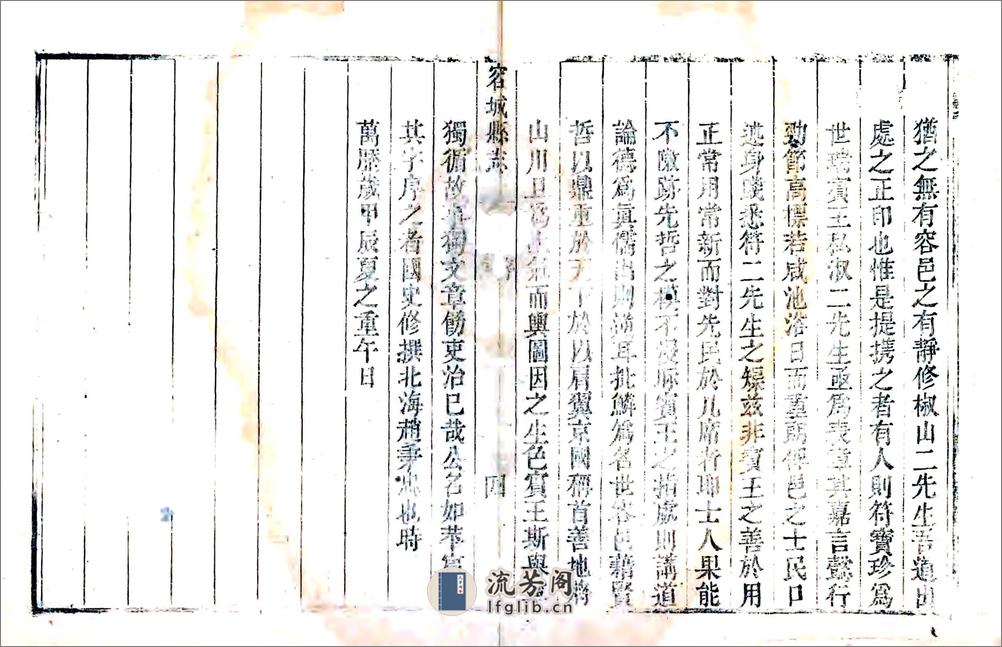 猶之無有容邑之有靜修椒山二先生吾道出
處之正印也惟是提挈之者有人則符寶珍爲
世瑞賓王私淑二先生亟爲表章其嘉言懿行
勁節高標若咸池浴日而重朗俾邑之士民口
述身踐悉符二先生之矱茲非賓王之善於用
正常用常新而對先民於几席者耶士人果能
不隳先哲之不賓王之指處則講道
論德爲眞儒出則批鱗爲名世容邑藉賢
哲以鼎重於天下於以肩翼京國稱首善地將
山川且爲生氣而輿圖因之生色賓王斯
獨循故事獨文章飭吏治已哉公名如
其字序之者國史修撰北海趙秉忠也時
萬曆歲甲辰夏之重午日
容城縣志
四
流芳阁
lfglib.cn